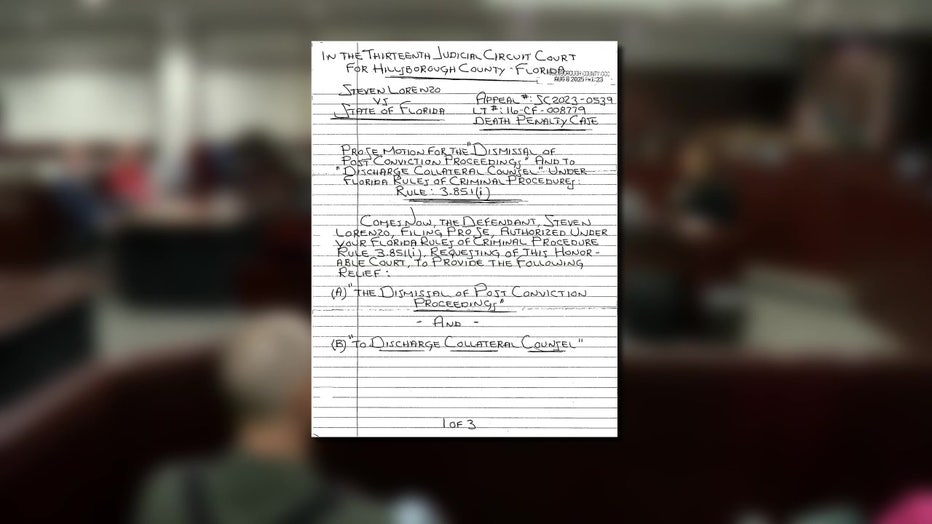 IN THE THIRTEENTH JUDICIAL CIRCUIT COURT
FOR HILLSBOROUGH COUNTY - FLORIDA
AUG 8 2025
STEVEN LORENZO
VS
STATE OF FLORIDA
APPEAL #: SC2023-0539
LT #: 16-CF-008779
DEATH PENALTY CASE
PROSE MOTION FOR THE "DISMISSAL OF
POST CONVICTION PROCEEDINGS" AND TO
"DISCHARGE COLLATERAL COUNSEL" UNDER
FLORIDA RULES OF CRIMINAL PROCEDURES:
RULE: 3.851(i)
COMES NOW, THE DEFENDANT, STEVEN
LORENZO, FILING PROSE, AUTHORIZED UNDER
YOUR FLORIDA RULES OF CRIMINAL PROCEDURE
RULE 3.851(i), REQUESTING OF THIS HONOR-
ABLE COURT, TO PROVIDE THE FOLLOWING
RELIEF:
(A) "THE DISMISSAL OF POST CONVICTION
PROCEEDINGS"
- AND -
(B) "TO DISCHARGE COLLATERAL COUNSEL"
1 OF 3